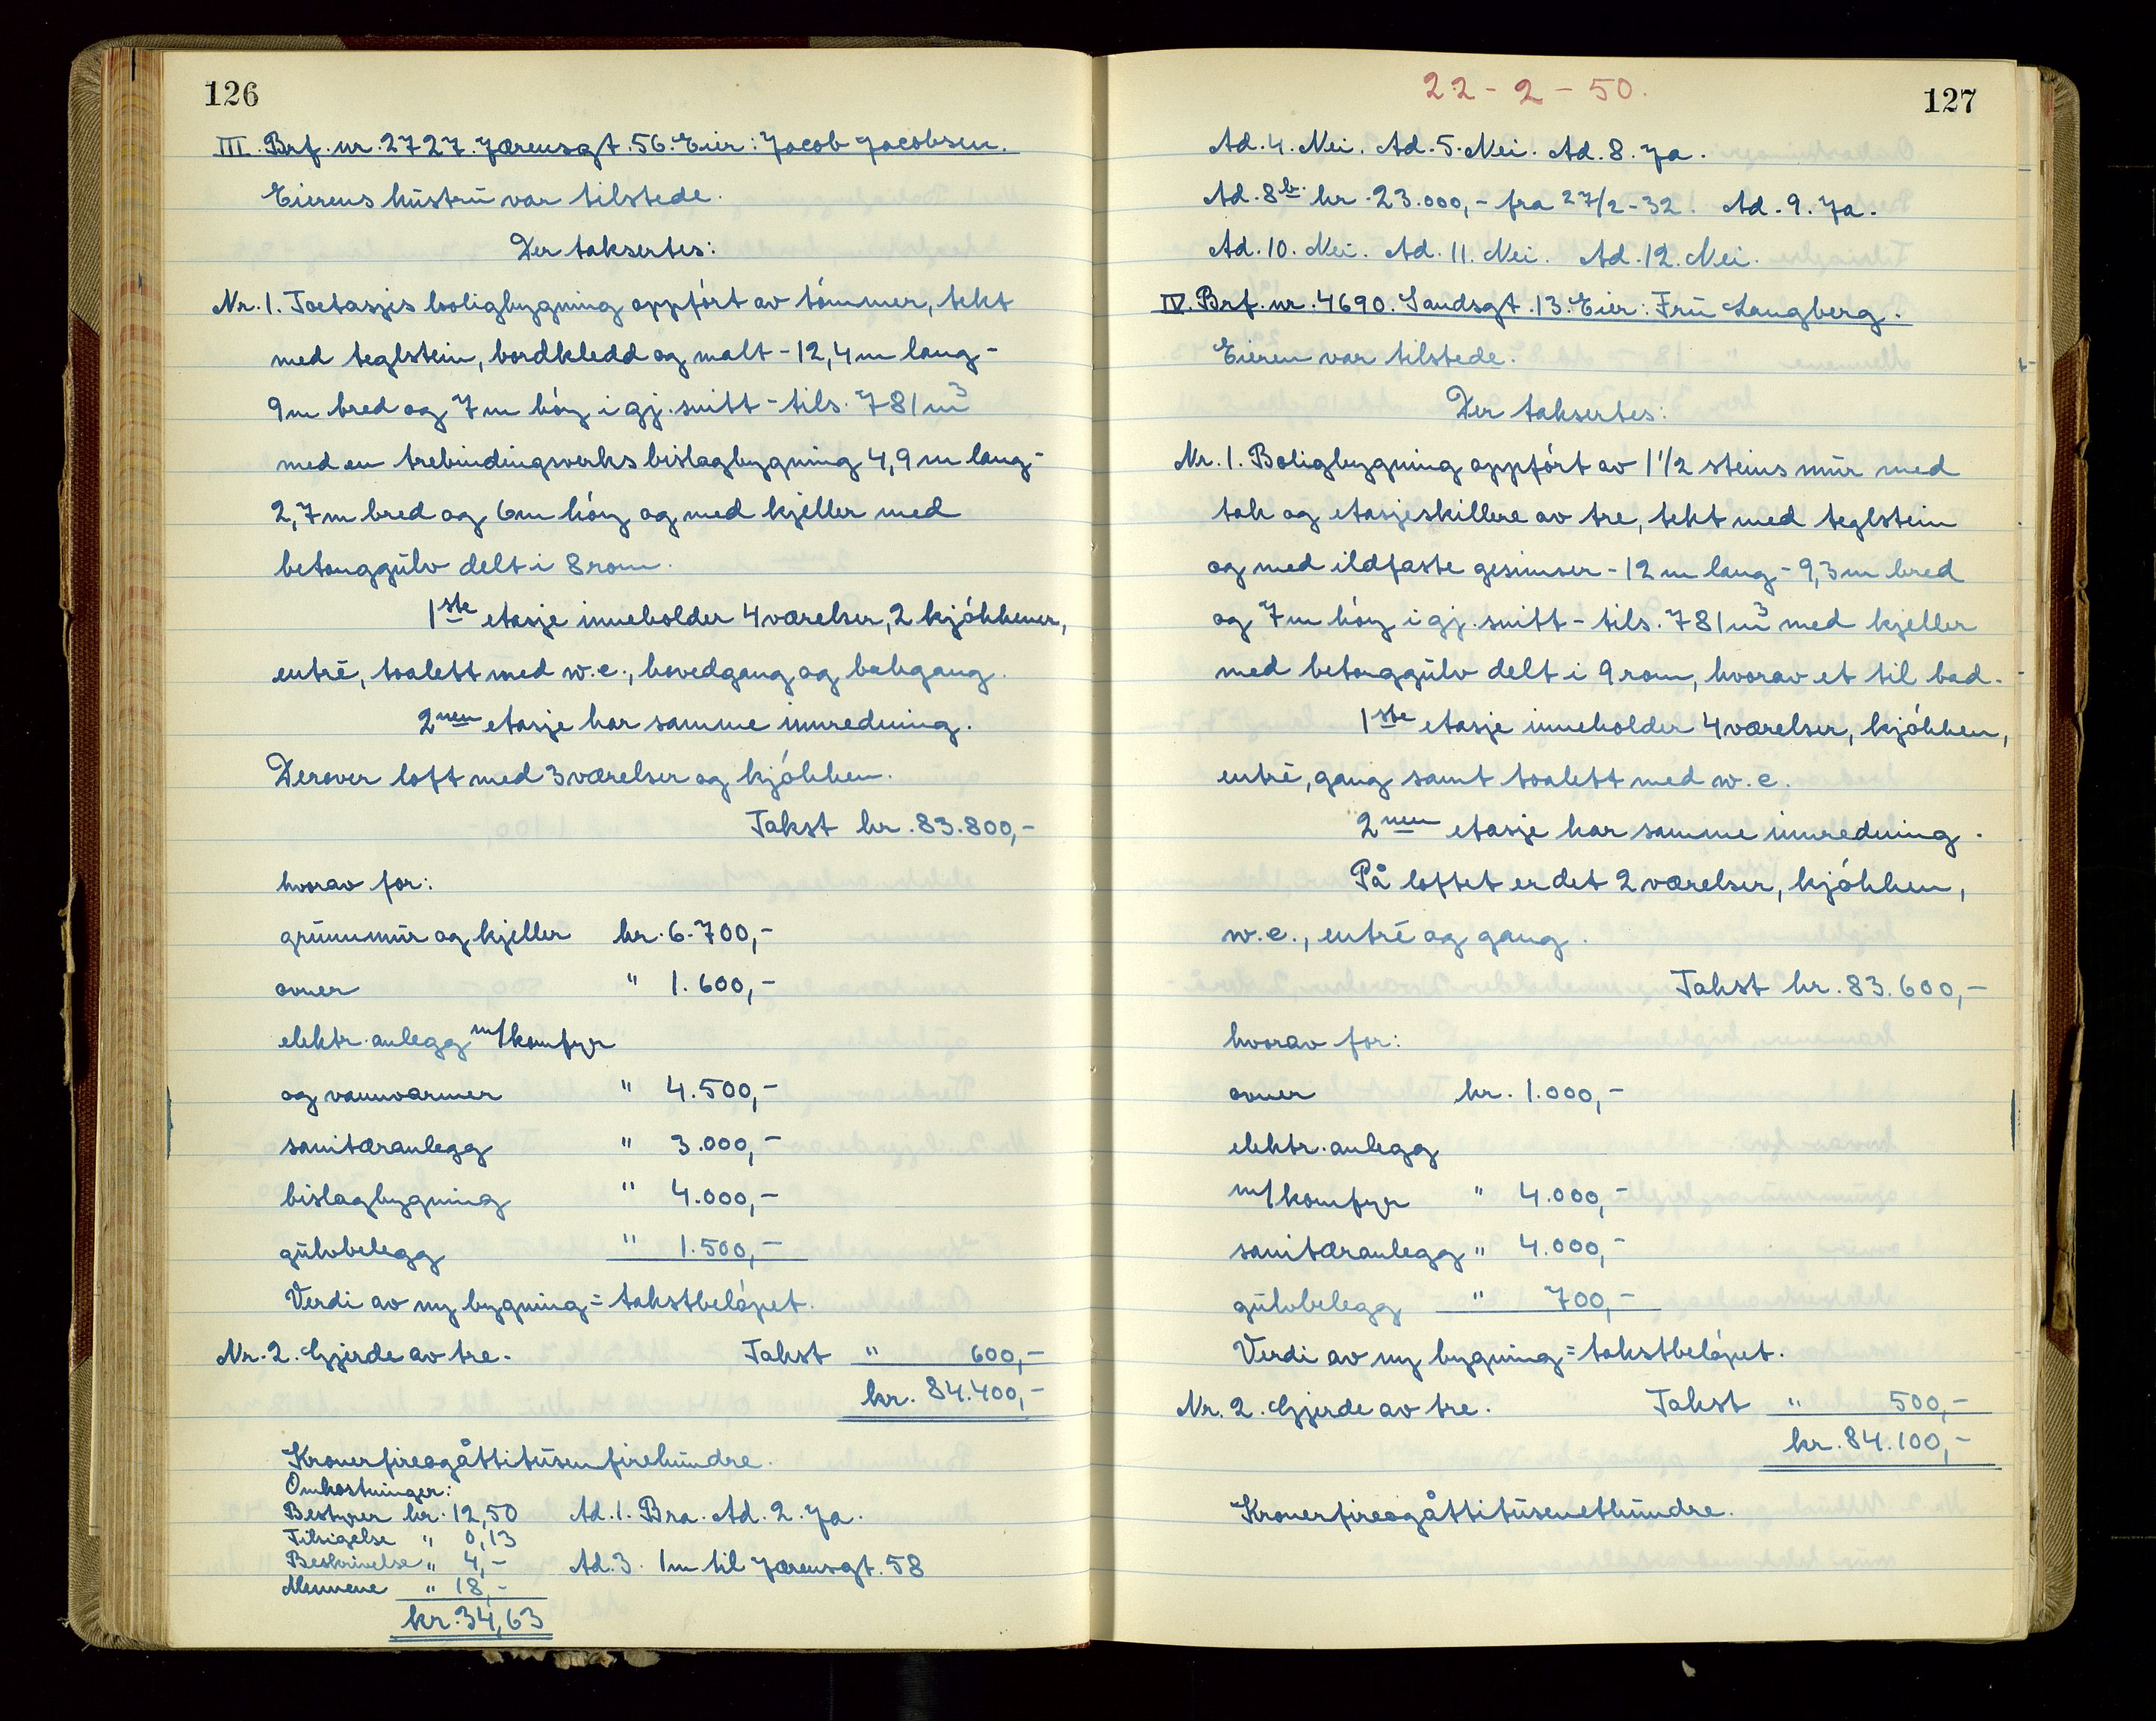 126
III. Brf. nr. 2727. Jærensgt. 56. Eier: Jacob Jacobsen.
Eierens hústrú var tilstede.
Der taksertes:
Nr. 1. Toetasjes boligbygning oppfört av tömmer, tekt
med teglstein, bordkledd og malt - 12,4 m lang -
9 m bred og 7 m höy i gj. snitt - tils. 781 m³
med en trebindingsverks bislagbygning 4,9 m lang -
2,7 m bred og 6 m höy og med kjeller med
betonggúlv delt i 8 rom.
1ste etasje inneholder 4 værelser, 2 kjökkener,
entré, toalett med w.c., hovedgang og bakgang.
2nen etasje har samme innredning.
Derover loft med 3 værelser og kjökken.
Takst kr. 83.800,-
hvorav for:
grúnnmúr og kjeller kr. 6.700,-
ovner " 1.600,-
elektr. anlegg m/komfyr
og vannvarmer " 4.500,-
sanitæranlegg " 3.000,-
bislagbygning " 4.000,-
gúlvbelegg " 1.500,-
Verdi av ny bygning = takstbelöpet.
Nr. 2. Gjerde av tre. Takst " 600,-
kr. 84.400,-
Kronerfireogåttitúsenfirehúndre.
Omkostninger:
Bestyrer kr. 12,50 Ad. 1. Bra. Ad. 2. Ja.
Tilsigelse " 0,13
Beskrivelse " 4,- Ad. 3. 1 m til Jærensgt. 58
Mennene " 18,-
kr. 34,63
22 - 2 - 50.
127
Ad. 4. Nei. Ad. 5. Nei. Ad. 8. Ja.
Ad. 8b. kr. 23.000,- fra 27/2-32. Ad. 9. Ja.
Ad. 10. Nei. Ad. 11. Nei. Ad. 12. Nei.
IV. Brf. nr. 4690. Sandsgt. 13. Eier: Frú Langberg.
Eieren var tilstede.
Der taksertes:
Nr. 1. Boligbygning oppfört av 1 1/2 steins múr med
tak og etasjeskillere av tre, tekt med teglstein
og med ildfaste gesimser - 12 m lang - 9,3 m bred
og 7 m höy i gj. snitt - tils. 781 m³ med kjeller
med betonggúlv delt i 9 rom, hvorav et til bad.
1ste etasje inneholder 4 værelser, kjökken,
entré, gang samt toalett med w.c.
2nen etasje har samme innredning.
På loftet er det 2 værelser, kjökken,
w.c., entré og gang.
Takst kr. 83.600,-
hvorav for:
ovner kr. 1.000,-
elektr. anlegg
m/komfyr " 4.000,-
sanitæranlegg " 4.000,-
gúlvbelegg " 700,-
Verdi av ny bygning = takstbelöpet.
Nr. 2. Gjerde av tre. Takst " 500,-
kr. 84.100,-
Kronerfireogåttitúsenethúndre.